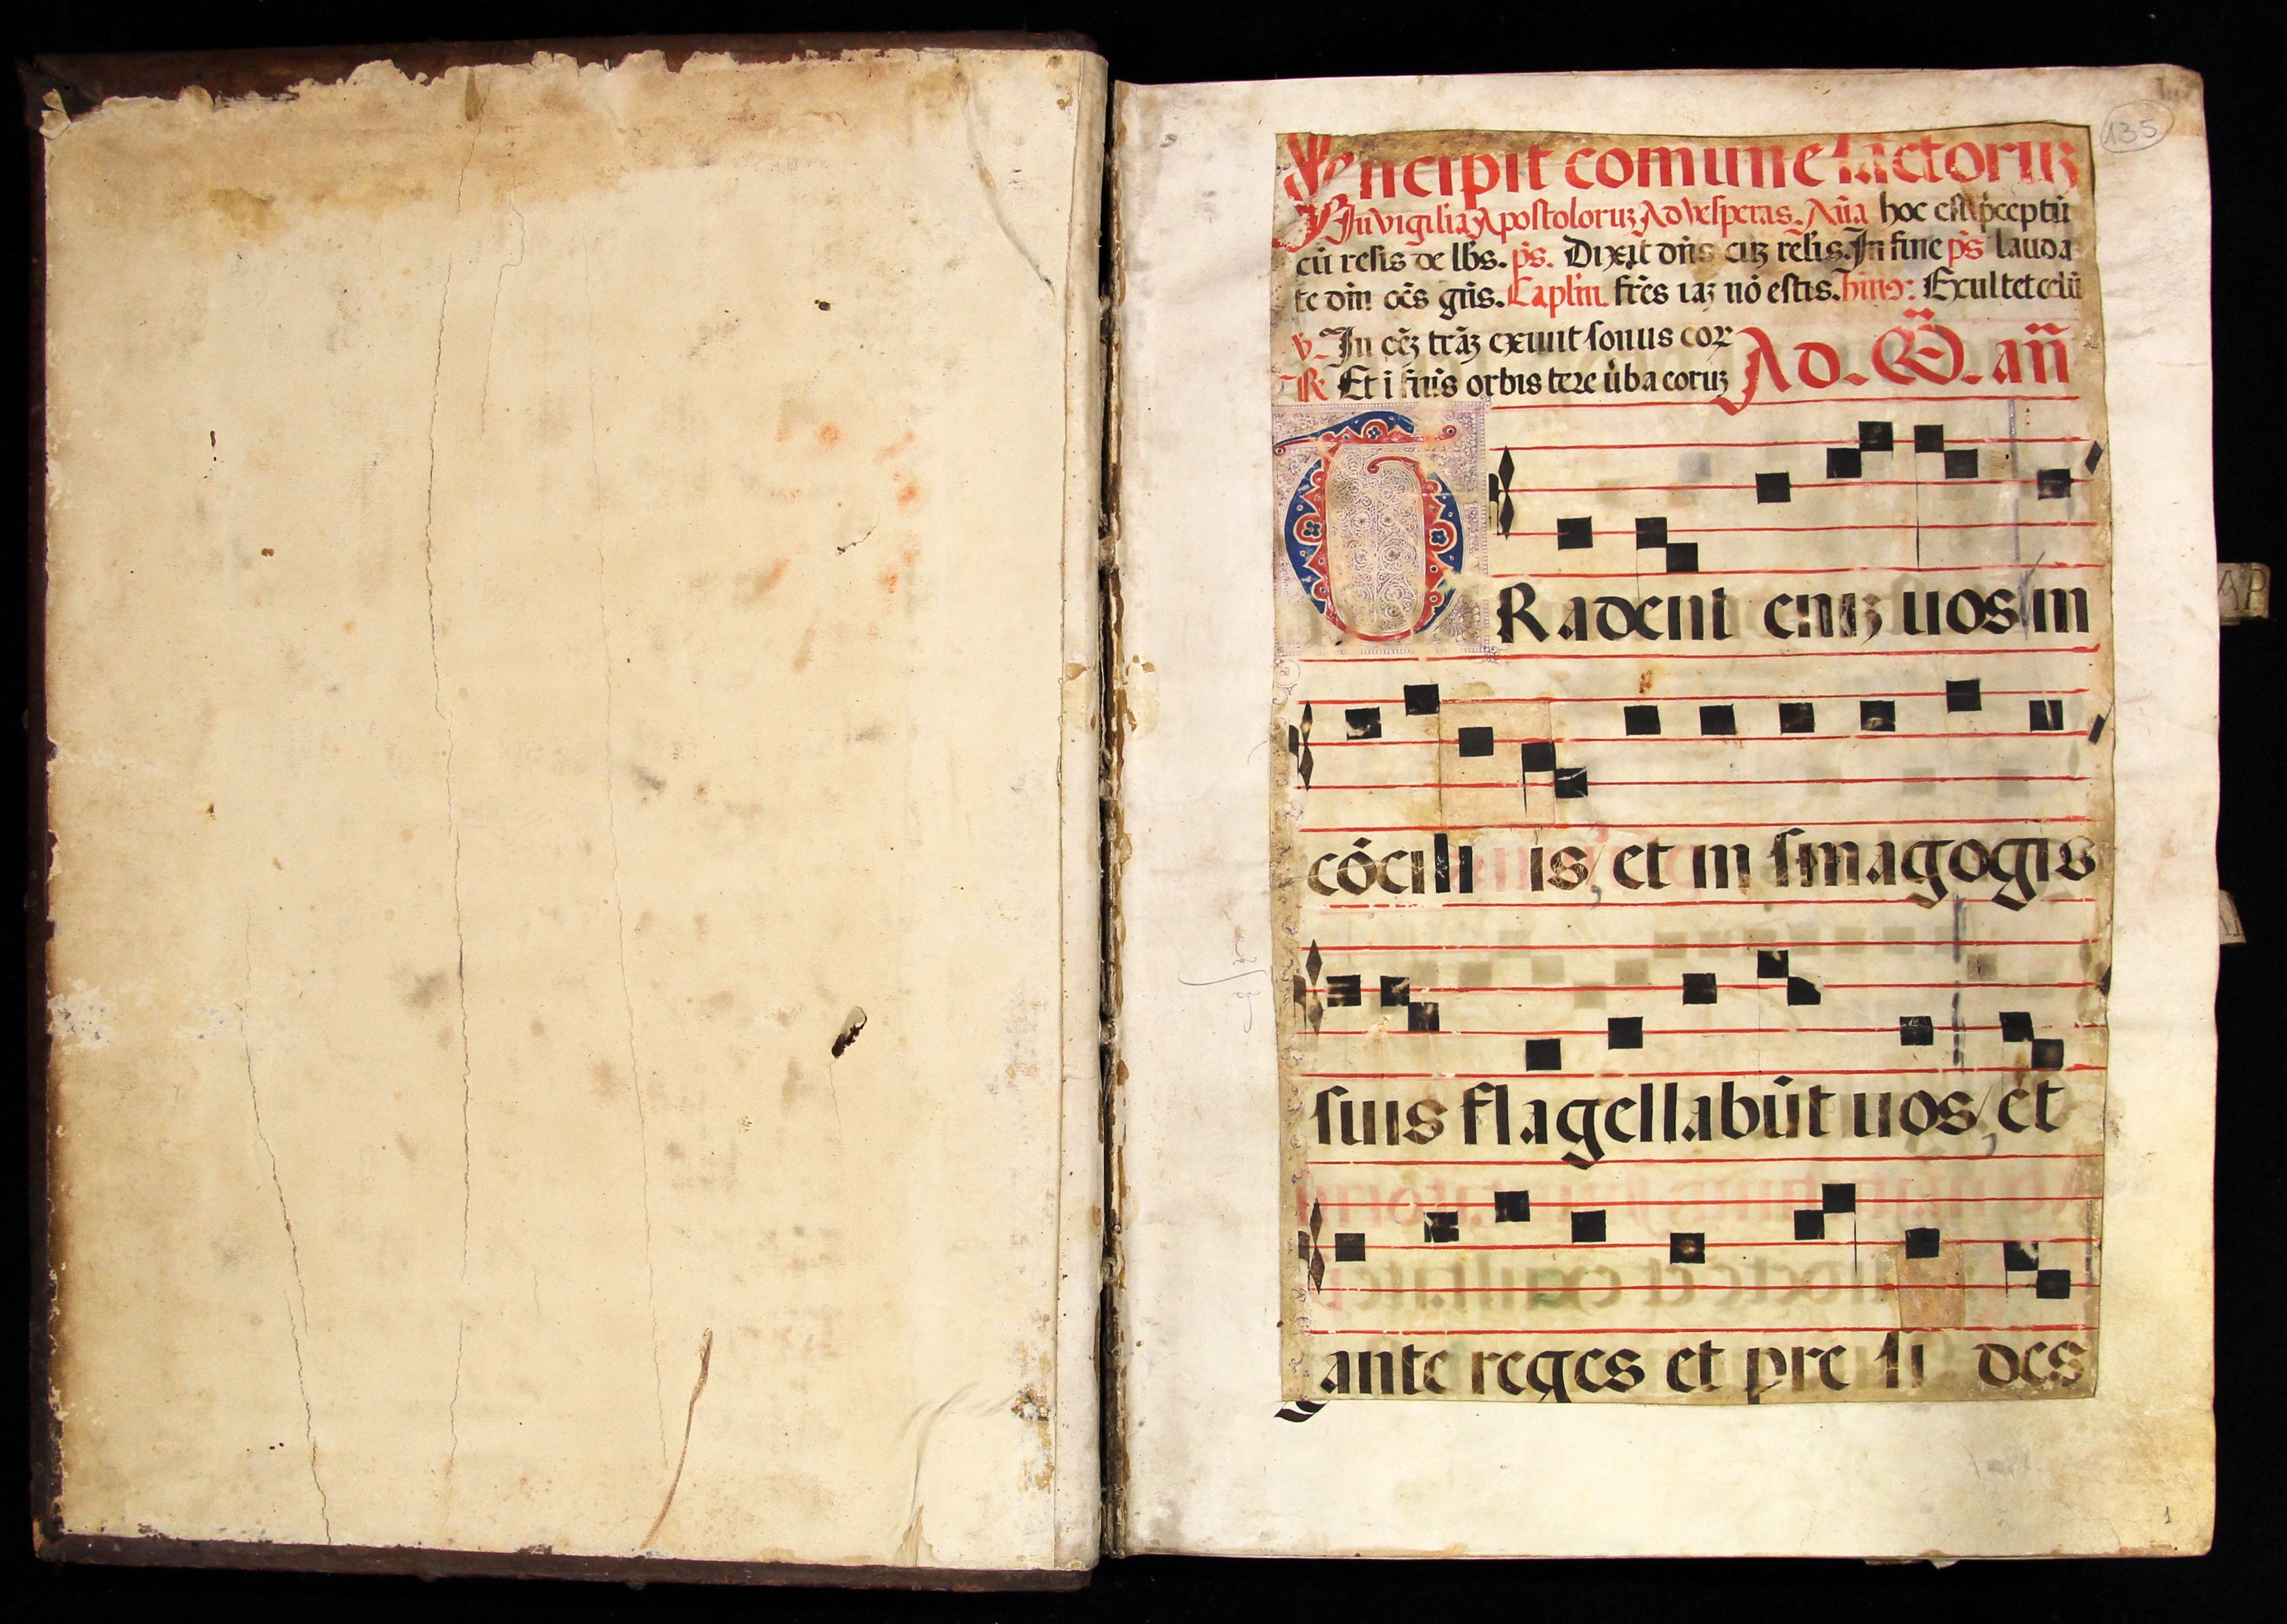 135
Incipit comune sāctoruz
In vigilia Apostoloruz Ad vesperas. Aña hoc est p̄ceptū
cū relis de lbs. p̄s. Dixit dn̄s cuz relis. In fine p̄s lauda
te din̄ oēs gn̄s. Caplm̄ frēs iaz nō estis. himɔ: Exultet celū
v. In oēz trāz exiuit sonus coꝝ
Ad. M̄. añ
R Et i fines orbis tere v̄ba coruz
TRadent eniz uos in
cōcili is, et in sinagogis
suis flagellabūt uos, et
ante reges et pre si des
AP
1